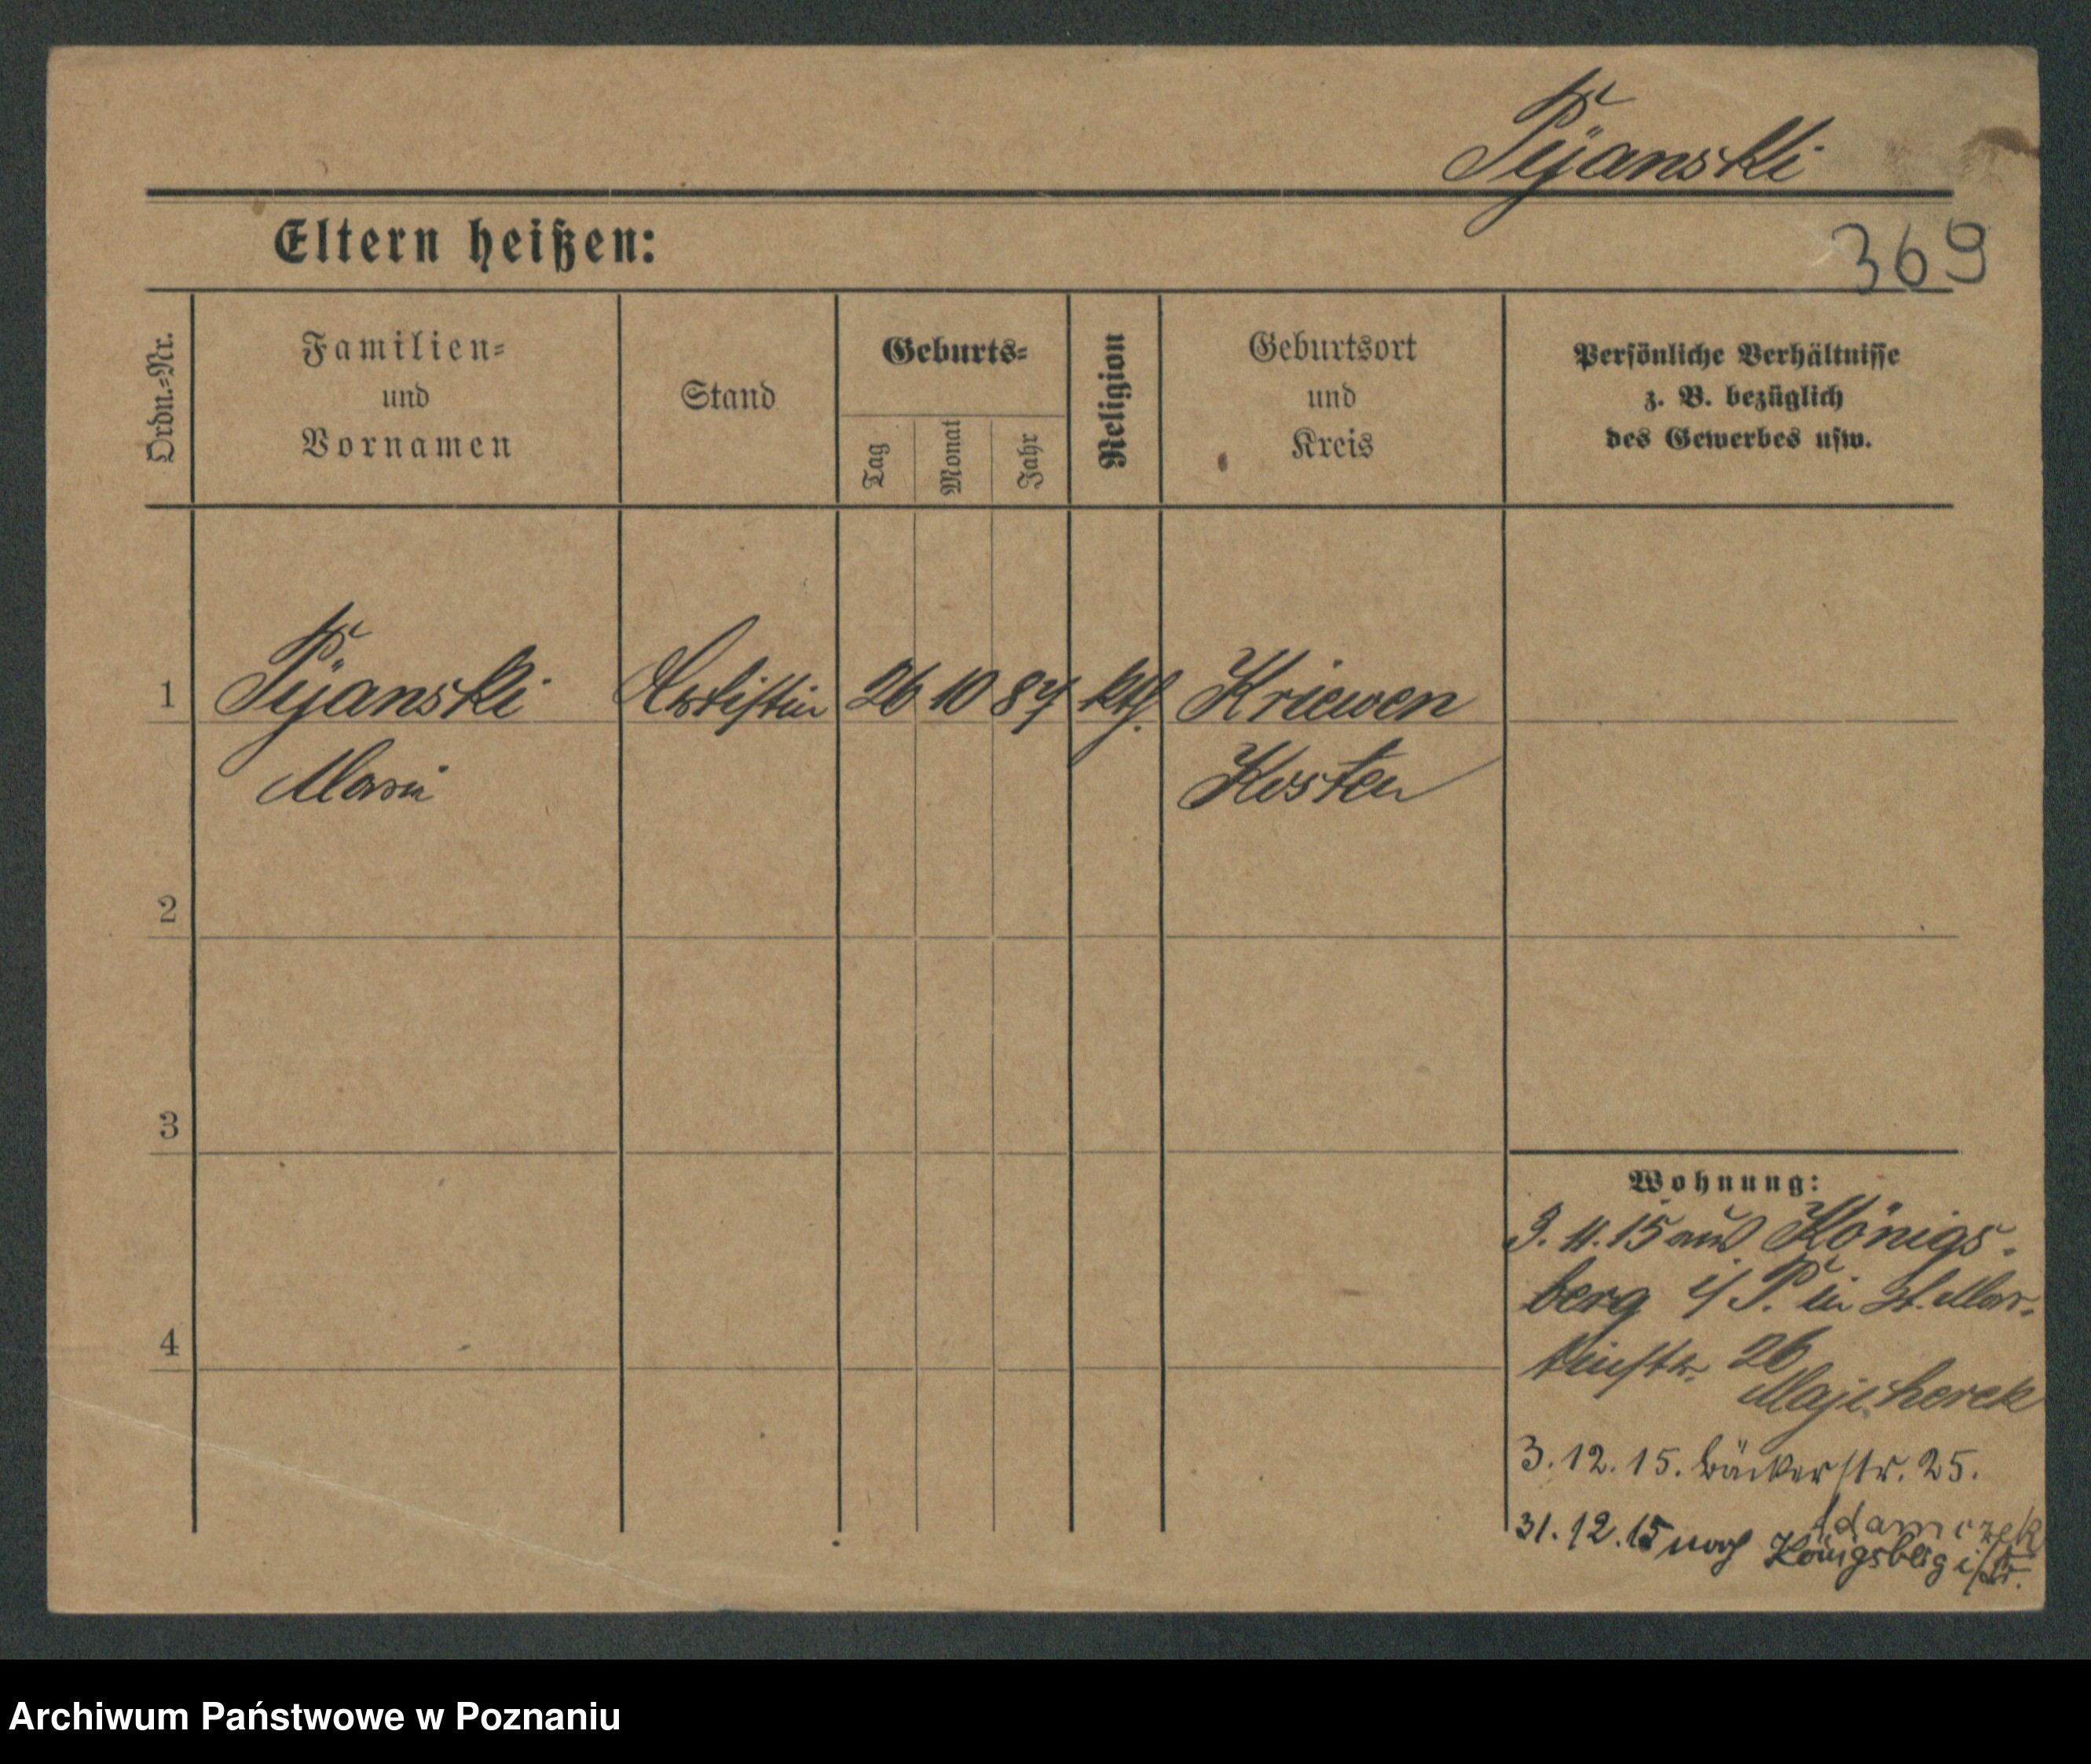 Pijanski
Eltern heißen:
369
Ordn.-Nr.
Familien-
und
Vornamen
Stand
Geburts-
Tag
Monat
Jahr
Religion
Geburtsort
und
Kreis
Persönliche Verhältnisse
z. B. bezüglich
des Gewerbes usw.
1 Pijanski Artistin 26 10 84 kth. Kriewen
Maria Kosten
2
3
4
Wohnung:
3. 11. 15 aus Königs-
berg i/P. in St. Mar-
tinstr. 26
Majcherek
3. 12. 15. Bäckerstr. 25.
Adamczek
31. 12. 15 nach Königsberg i/Pr.
Archiwum Państwowe w Poznaniu